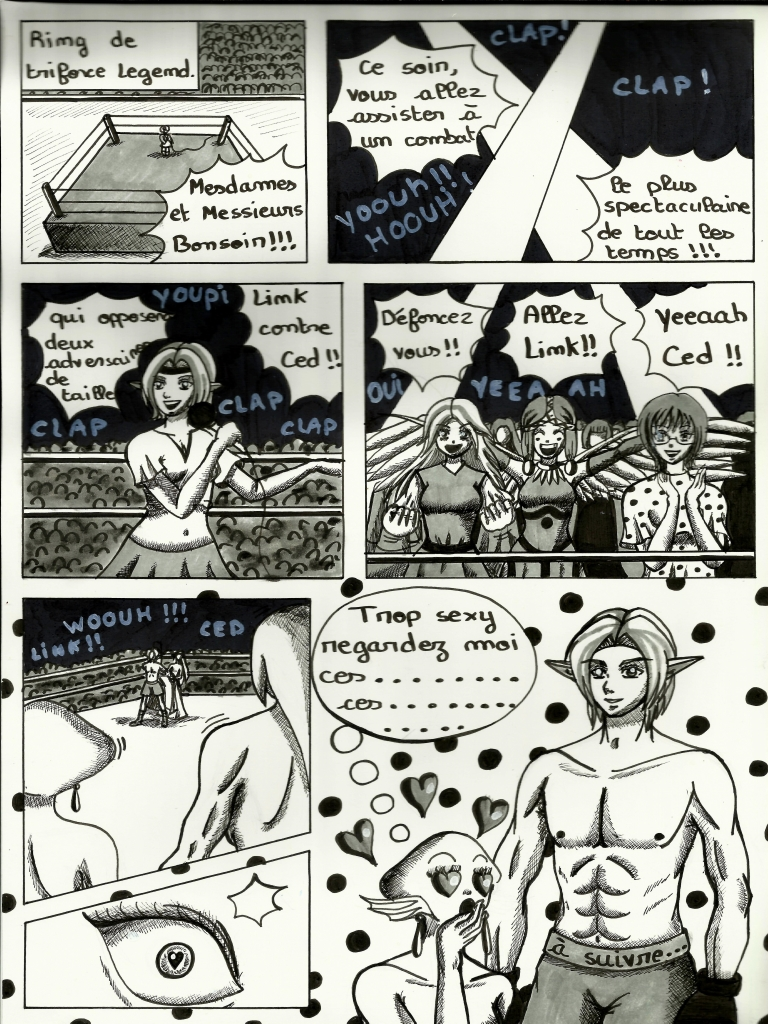 Ring de
triforce Legend.
Mesdames
et Messieurs
Bonsoir!!!
Ce soir,
vous allez
assister à
un combat
CLAP!
CLAP!
YOOUH!!
HOOUH!
le plus
spectaculaire
de tout les
temps !!!
qui opposera
deux
adversaires
de
taille
YOUPI
Link
contre
Ced !!
CLAP
CLAP
CLAP
Défoncez
vous!!
Allez
Link!!
Yeeaah
Ced !!
OUI
YEEA AH
WOOUH !!!
LINK!!
CED
Trop sexy
regardez moi
ces . . . . . . . . .
ces . . . . . . . .
. . . . .
à suivre...